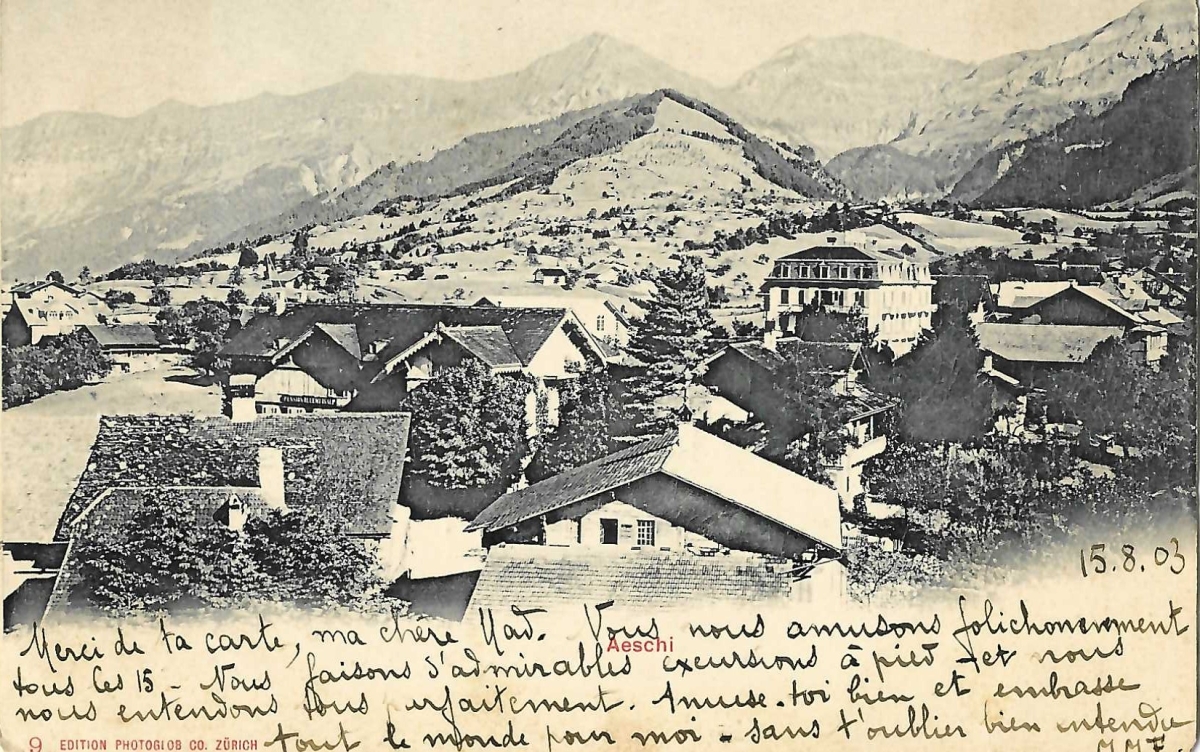 PENSION BLUEMLISALP
15.8.03
Merci de ta carte, ma chère Mad. Vous nous amusons folichonnement
Aeschi
tous les 15 - Nous faisons d'admirables excursions à pied - et nous
nous entendons tous parfaitement. Amuse-toi bien et embrasse
tout le monde pour moi - sans t'oublier bien entendu
9 EDITION PHOTOGLOB CO. ZÜRICH